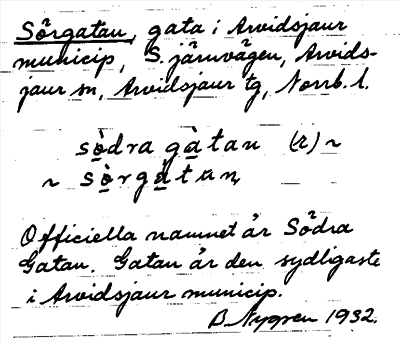 Sörgatan, gata i Arvidsjaur
municip, S. järnvägen, Arvids-
jaur sn, Arvidsjaur tg, Norrb. l.
sò̲dra gà̲tan (r) ~
~ sò̲rgà̲tan,
Officiella namnet är Södra
Gatan. Gatan är den sydligaste
i Arvidsjaur municip.
B. Nygren 1932.